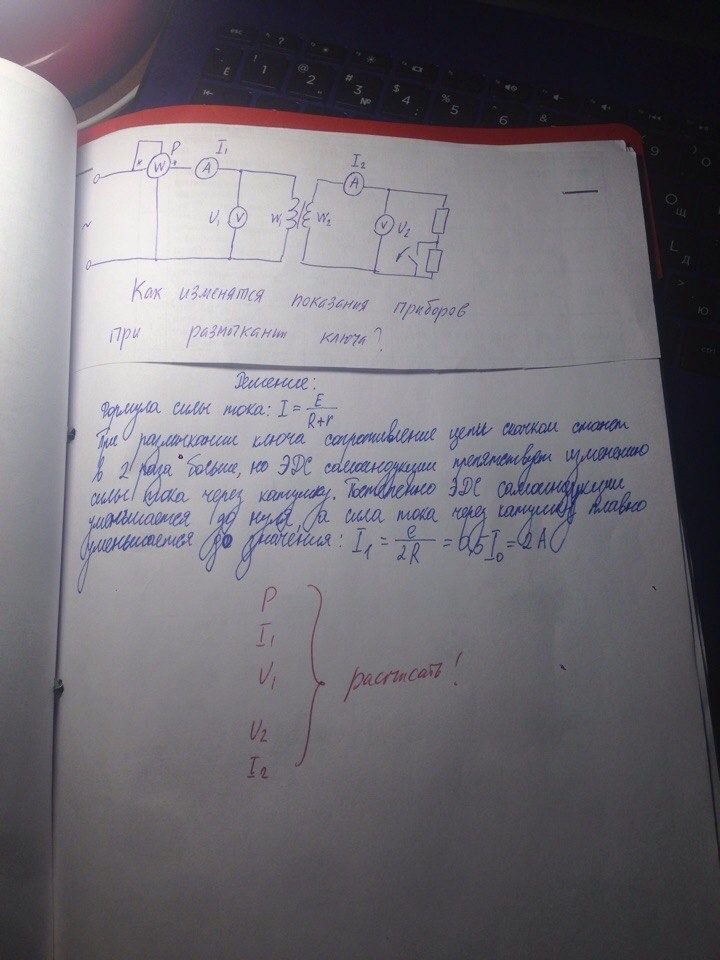 P
I₁
I₂
* W *
A
A
U₁ V
W₁ W₂
V U₂
~
Как изменятся показания приборов
при размыкании ключа?
Решение:
Формула силы тока: I = E/(R+r)
При размыкании ключа сопротивление цепи скачком станет
в 2 раза больше, но ЭДС самоиндукции препятствует изменению
силы тока через катушку. Постепенно ЭДС самоиндукции
уменьшается до нуля, а сила тока через катушку плавно
уменьшается до значения: I₁ = e/2R = 0,5I₀ = 2A
P
I₁
U₁
расписать!
U₂
I₂